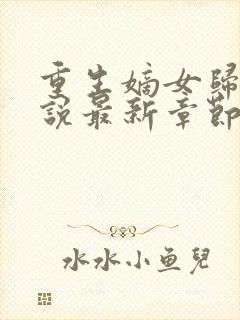 重生嫡女歸
說最新章節
水水小鱼兒